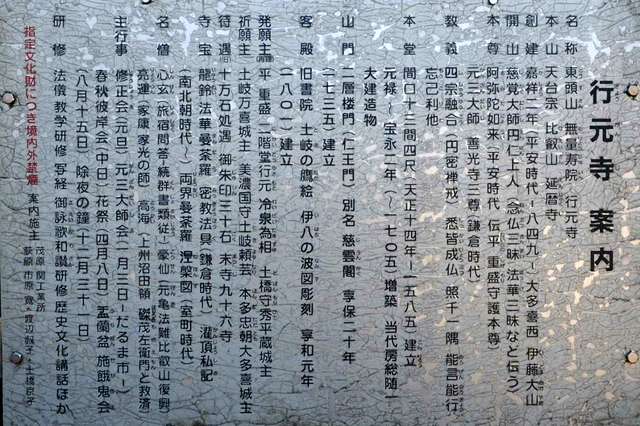 行元寺 案内
名称 東頭山 無量寿院 行元寺
本山 天台宗 比叡山 延暦寺
創建 嘉祥二年(平安時代ー八四九ー大多喜西 伊藤大山
開山 慈覚大師円仁上人(念仏三昧 法華三昧など伝う)
本尊 阿弥陀如来(平安時代 伝平 重盛守護本尊)
元三大師 善光寺三尊(鎌倉時代)
教義 四宗融合(円密禅戒) 悉皆成仏 照千一隅 能言能行
忘己利他
本堂 間口十三間四尺(天正十四年ー一五八五)建立
元禄〜宝永二年(〜一七〇五)増築 当代房総随一
大建造物
山門 二層楼門(仁王門)別名 慈雲閣 享保二十年
(一七三五)建立
客殿 旧書院 土岐の鷹絵 伊八の波図彫刻 享和元年
(一八〇一)建立
発願主 平 重盛 二階堂行元 冷泉為相 土橋守秀平蔵城主
祈願主 土岐万喜城主 美濃国守土岐頼芸 本多忠朝大多喜城主
待遇 十万石処遇 御朱印三十石 末寺九十六寺
寺宝 龍鈴法華曼荼羅(密教法具)(鎌倉時代) 灌頂私記
(南北朝時代〜) 両界曼荼羅 涅槃図(室町時代)
名僧 心玄(旅宿問答・続群書類従)ー豪仙(元亀法難比叡山復興)
亮運(家康家光の師) 高海(上州沼田領 磔茂左衛門と救済)
主行事 修正会(元旦) 元三大師会(一月三日ーだるま市ー)
春秋彼岸会(中日) 花祭(四月八日) 盂蘭盆 施餓鬼会
(八月十五日) 除夜の鐘(十二月三十一日)
研修 法儀 教学研修 写経 御詠歌和讃研修 歴史文化講話ほか
指定文化財につき境内外禁煙 案内施主 茂原 関工業所
荻原 市原 寛・渡辺敦子・土橋京子